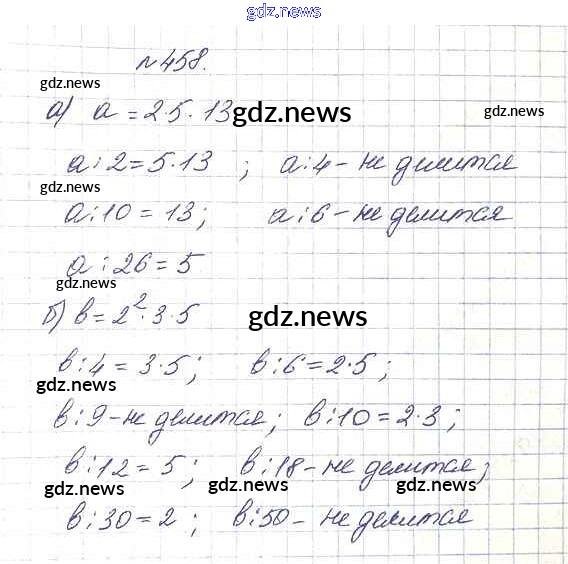 gdz.news
№458.
gdz.news
а) a = 2·5·13 gdz.news
a:2=5·13 ; a:4 - не делится
gdz.news
a:10 = 13; a:6 - не делится
a:26 = 5
gdz.news
б) b = 2²·3·5 gdz.news
b:4 = 3·5; b:6 = 2·5;
gdz.news
b:9 - не делится; b:10 = 2·3;
b:12 = 5; b:18 - не делится;
gdz.news gdz.news gdz.news
b:30 = 2; b:50 - не делится